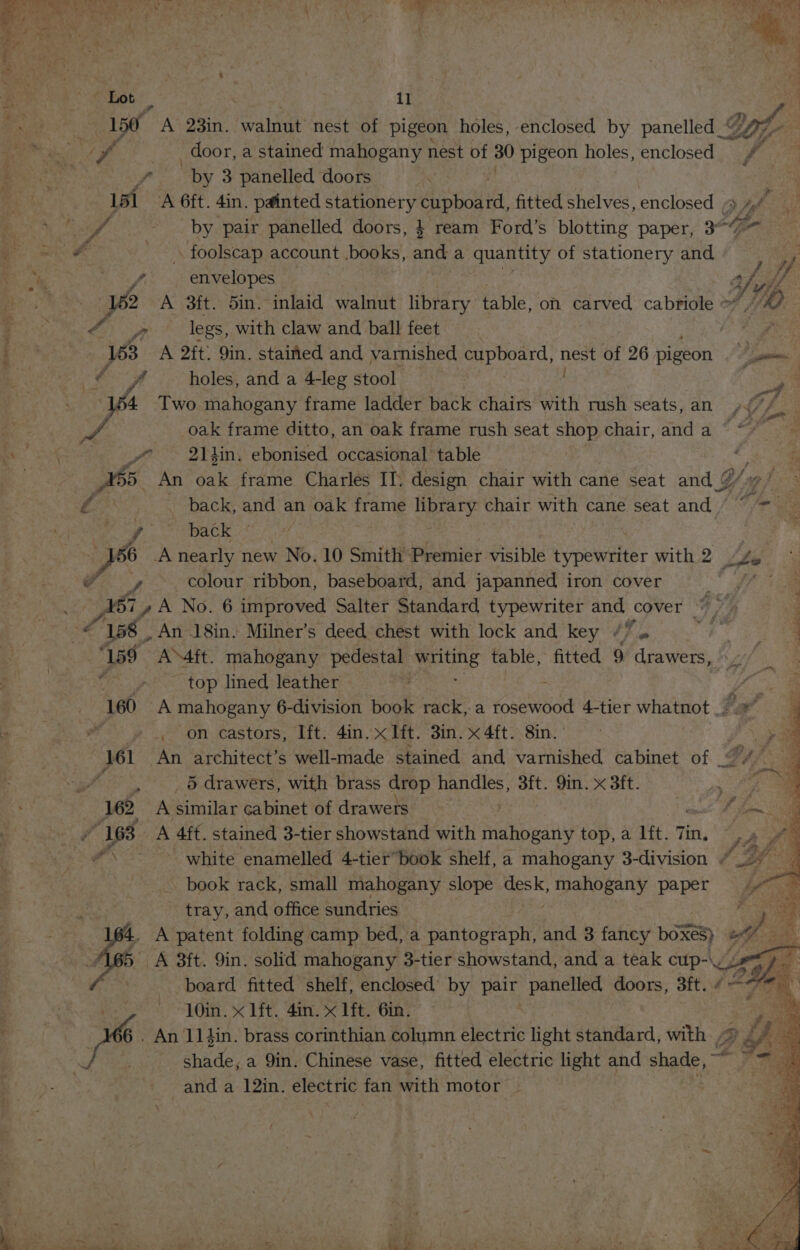 Lot 11
150 A 23in. walnut nest of pigeon holes, enclosed by panelled
door, a stained mahogany nest of 30 pigeon holes, enclosed
by 3 panelled doors
151 A 6ft. 4in. painted stationery cupboard, fitted shelves, enclosed
by pair panelled doors, ½ ream Ford's blotting paper, 3
foolscap account books, and a quantity of stationery and
envelopes
152 A 3ft. 5in. inlaid walnut library table, on carved cabriole
legs, with claw and ball feet
153 A 2ft. 9in. stained and varnished cupboard, nest of 26 pigeon
holes, and a 4-leg stool
154 Two mahogany frame ladder back chairs with rush seats, an
oak frame ditto, an oak frame rush seat shop chair, and a
21½in. ebonised occasional table
155 An oak frame Charles II. design chair with cane seat and
back, and an oak frame library chair with cane seat and
back
156 A nearly new No. 10 Smith Premier visible typewriter with 2
colour ribbon, baseboard, and japanned iron cover
157 A No. 6 improved Salter Standard typewriter and cover
158 An 18in. Milner's deed chest with lock and key
159 A 4ft. mahogany pedestal writing table, fitted 9 drawers,
top lined leather
160 A mahogany 6-division book rack, a rosewood 4-tier whatnot
on castors, 1ft. 4in. × 1ft. 3in. × 4ft. 8in.
161 An architect's well-made stained and varnished cabinet of
5 drawers, with brass drop handles, 3ft. 9in. × 3ft.
162 A similar cabinet of drawers
163 A 4ft. stained 3-tier showstand with mahogany top, a 1ft. 7in.
white enamelled 4-tier book shelf, a mahogany 3-division
book rack, small mahogany slope desk, mahogany paper
tray, and office sundries
164 A patent folding camp bed, a pantograph, and 3 fancy boxes
165 A 3ft. 9in. solid mahogany 3-tier showstand, and a teak cup-
board fitted shelf, enclosed by pair panelled doors, 3ft.
10in. × 1ft. 4in. × 1ft. 6in.
166 An 11½in. brass corinthian column electric light standard, with
shade, a 9in. Chinese vase, fitted electric light and shade,
and a 12in. electric fan with motor